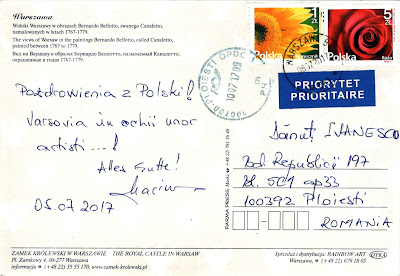 Warszawa
Widoki Warszawy w obrazach Bernardo Bellotto, zwanego Canaletto,
namalowanych w latach 1767-1777.
The views of Warsaw in the paintings Bernardo Bellotto, called Canaletto,
painted between 1767 to 1779.
Вид на Варшаву в образах Бернардо Беллотто, называемый Каналетто,
окрашенные в годах 1767-1779.
Pozdrowienia z Polski!
Varsovia în ochii unor
artisti...!
Alles Gutte!
Marcin
05.07.2017
ZAMEK KRÓLEWSKI W WARSZAWIE THE ROYAL CASTLE IN WARSAW
Pl. Zamkowy 4, 00-277 Warszawa
informacja (+48 22) 35 55 170, www.zamek-krolewski.pl
1 ZŁ
Polska
5 ZŁ
Polska
Róża
PLOIESTI
10 07 17 09
WARSZAWA
PRIORYTET
PRIORITAIRE
Dănuț IVĂNESCU
Bd. Republicii 197
bl. 5C1 ap33
100392 Ploiești
ROMANIA
Sprzedaż i dystrybucja: RAINBOW ART
Warszawa, (+48 22) 679 18 05